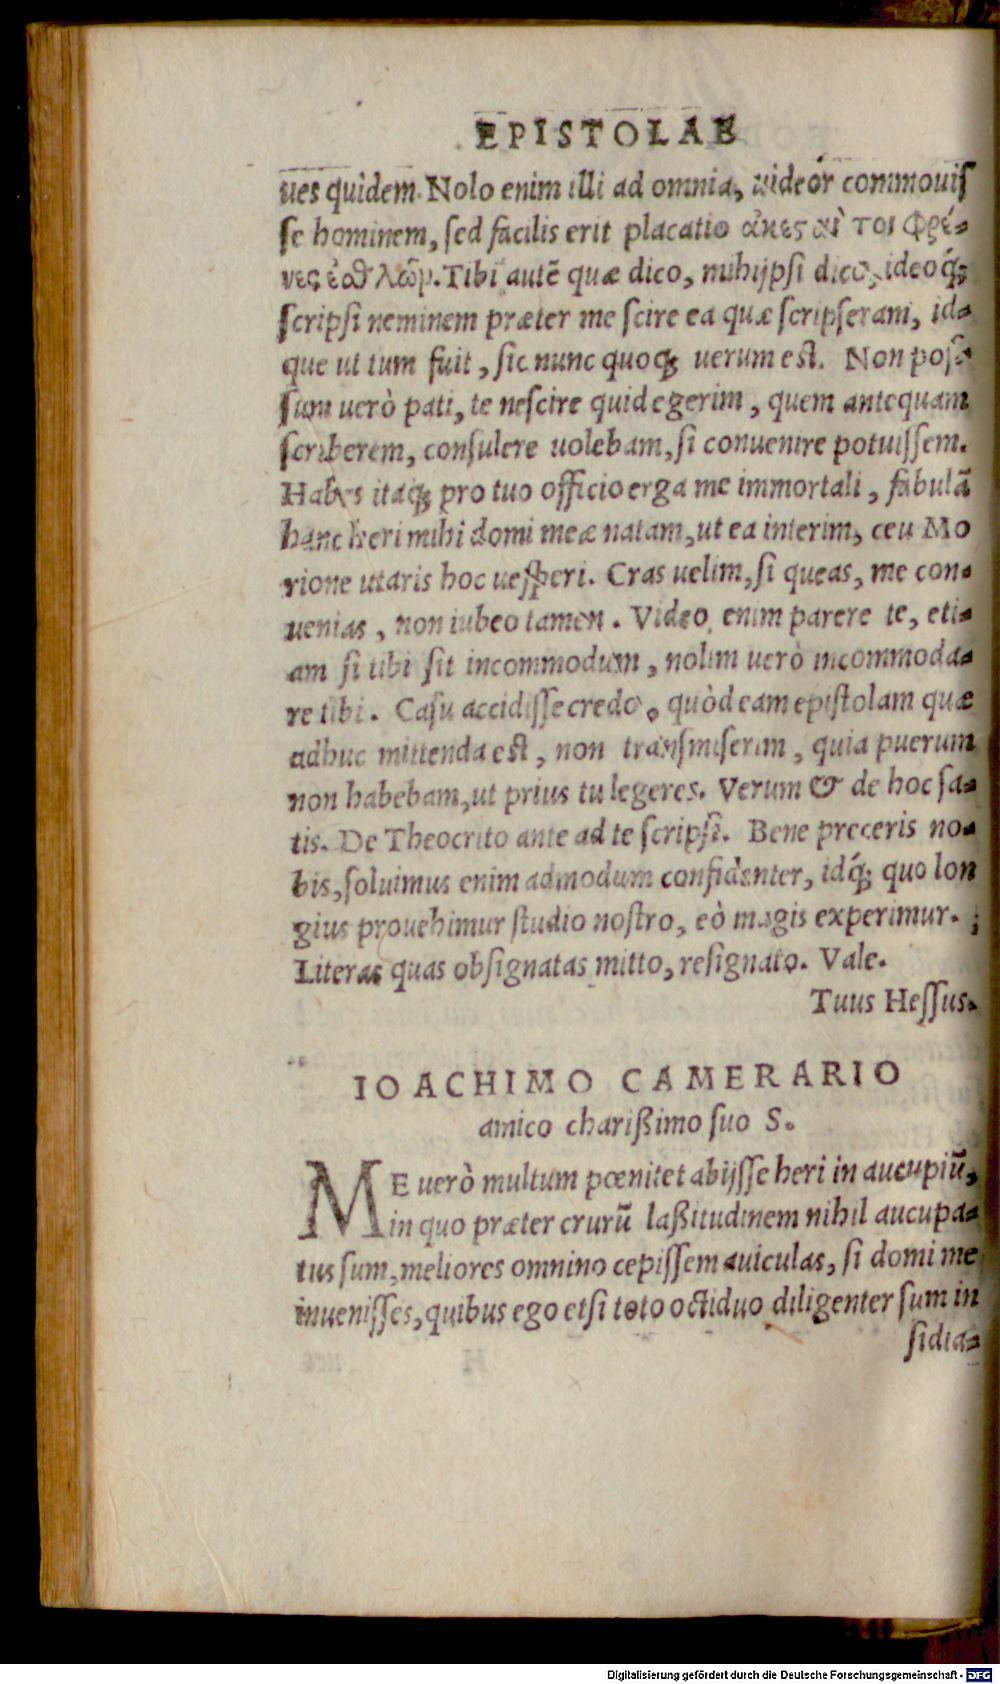 EPISTOLAE
ues quidem. Nolo enim illi ad omnia, uideor commouiſ
ſe hominem, ſed facilis erit placatio ἀκες αὶ τοι φρέ-
νες ἐσθλῶν. Tibi autē quæ dico, mihijpſi dico, ideoq́;
ſcripſi neminem præter me ſcire ea quæ ſcripſeram, id-
que ut tum fuit, ſic nunc quoq; uerum est. Non poſ-
ſum uerò pati, te neſcire quid egerim, quem antequam
ſcriberem, conſulere uolebam, ſi conuenire potuiſſem.
Habes itaq; pro tuo officio erga me immortali, fabulā
hanc heri mihi domi meæ natam, ut ea interim, ceu Mo
rione utaris hoc ueſperi. Cras uelim, ſi queas, me con-
uenias, non iubeo tamen. Video enim parere te, eti-
am ſi tibi ſit incommodum, nolim uerò incommoda-
re tibi. Caſu accidiſſe credo, quòd eam epiſtolam quæ
adhuc mittenda est, non tranſmiſerim, quia puerum
non habebam, ut prius tu legeres. Verum & de hoc ſa-
tis. De Theocrito ante ad te ſcripſi. Bene preceris no-
bis, ſoluimus enim admodum confidenter, idq́; quo lon
gius prouehimur ſtudio noſtro, eò magis experimur.
Literas quas obſignatas mitto, reſignato. Vale.
Tuus Heſſus.
IOACHIMO CAMERARIO
amico charißimo ſuo S.
ME uerò multum pœnitet abijſſe heri in aucupiū,
in quo præter crurū laßitudinem nihil aucupa-
tus ſum, meliores omnino cepiſſem auiculas, ſi domi me
inueniſſes, quibus ego etſi toto octiduo diligenter ſum in
ſidia-
Digitalisierung gefördert durch die Deutsche Forschungsgemeinschaft - DFG